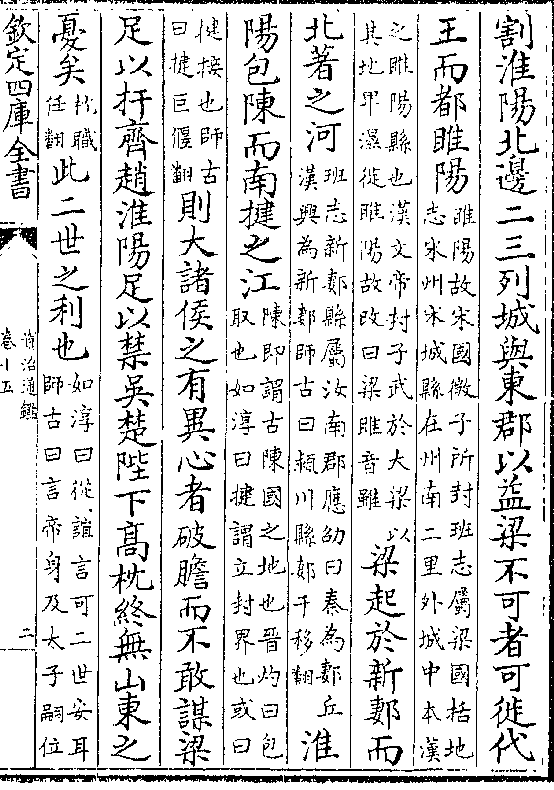 割淮陽北邊二三列城與東郡以益梁不可者可徙代
王而都睢陽睢陽故宋國微子所封班志屬梁國括地
志宋州宋城縣在州南二里外城中本漢
之睢陽縣也漢文帝封子武於大梁
其地卑濕徙睢陽故改曰梁睢音雖以梁起於新郪而
北著之河班志新郪縣屬汝南郡應劭曰秦為郪丘
漢興為新郪師古曰潁川縣郪千移翻淮
陽包陳而南揵之江陳即謂古陳國之地也晉灼曰包
取也如淳曰揵謂立封界也或曰
揵接也師古
曰揵巨偃翻則大諸侯之有異心者破膽而不敢謀梁
足以扞齊趙淮陽足以禁吳楚陛下高枕終無山東之
憂矣枕職
任翻此二世之利也如淳曰從誼言可二世安耳
師古曰言帝身及太子嗣位
欽定四庫全書
資治通鑑
卷十五
二